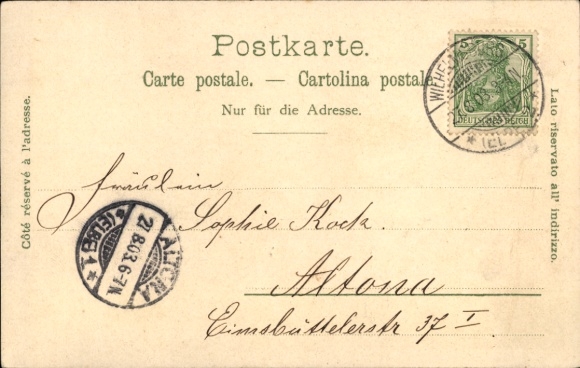 Postkarte.
Carte postale. — Cartolina postale
Nur für die Adresse.
Côté réservé à l'adresse.
Lato riservato all' indirizzo.
5
DEUTSCHES REICH
Fräulein
Sophie Kock.
Altona
Eimsbüttelerstr 37 I
ALTONA
21.8.03.6-7N.
*(ELBE)1*